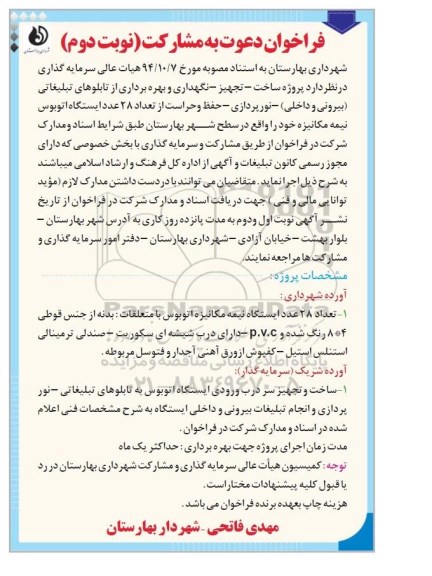 فراخوان دعوت به مشارکت (نوبت دوم)
شهرداری بهارستان به استناد مصوبه مورخ ۹۴/۱۰/۷ هیات عالی سرمایه گذاری
در نظر دارد پروژه ساخت – تجهیز – نگهداری و بهره برداری از تابلوهای تبلیغاتی
(بیرونی و داخلی) – نورپردازی – حفظ و حراست از تعداد ۲۸ عدد ایستگاه اتوبوس
نیمه مکانیزه خود را واقع در سطح شهر بهارستان طبق شرایط اسناد و مدارک
شرکت در فراخوان از طریق مشارکت و سرمایه گذاری با بخش خصوصی که دارای
مجوز رسمی کانون تبلیغات و آگهی از اداره کل فرهنگ و ارشاد اسلامی میباشند
به شرح ذیل اجرا نماید. متقاضیان می توانند با در دست داشتن مدارک لازم (مؤید
توانایی مالی و فنی) جهت دریافت اسناد و مدارک شرکت در فراخوان از تاریخ
نشر آگهی نوبت اول و دوم به مدت پانزده روز کاری به آدرس شهر بهارستان –
بلوار بهشت – خیابان آزادی – شهرداری بهارستان – دفتر امور سرمایه گذاری و
مشارکت ها مراجعه نمایند.
مشخصات پروژه:
آورده شهرداری:
۱– تعداد ۲۸ عدد ایستگاه نیمه مکانیزه اتوبوس با متعلقات: بدنه از جنس قوطی
۴*۸ رنگ شده و p.v.c – دارای درب شیشه ای سکوریت – صندلی ترمینالی
استنلس استیل – کفپوش از ورق آهنی آجدار و فتوسل مربوطه.
آورده شریک (سرمایه گذار):
۱– ساخت و تجهیز سر درب ورودی ایستگاه اتوبوس به تابلوهای تبلیغاتی – نور
پردازی و انجام تبلیغات بیرونی و داخلی ایستگاه به شرح مشخصات فنی اعلام
شده در اسناد و مدارک شرکت در فراخوان.
مدت زمان اجرای پروژه جهت بهره برداری: حداکثر یک ماه
توجه: کمیسیون هیأت عالی سرمایه گذاری و مشارکت شهرداری بهارستان در رد
یا قبول کلیه پیشنهادات مختار است.
هزینه چاپ بعهده برنده فراخوان می باشد.
مهدی فاتحی - شهردار بهارستان
ParsNamadData
پایگاه اطلاع رسانی مناقصه و مزایده
۰۲۱-۸۸۳۴۹۶۷۰-۵